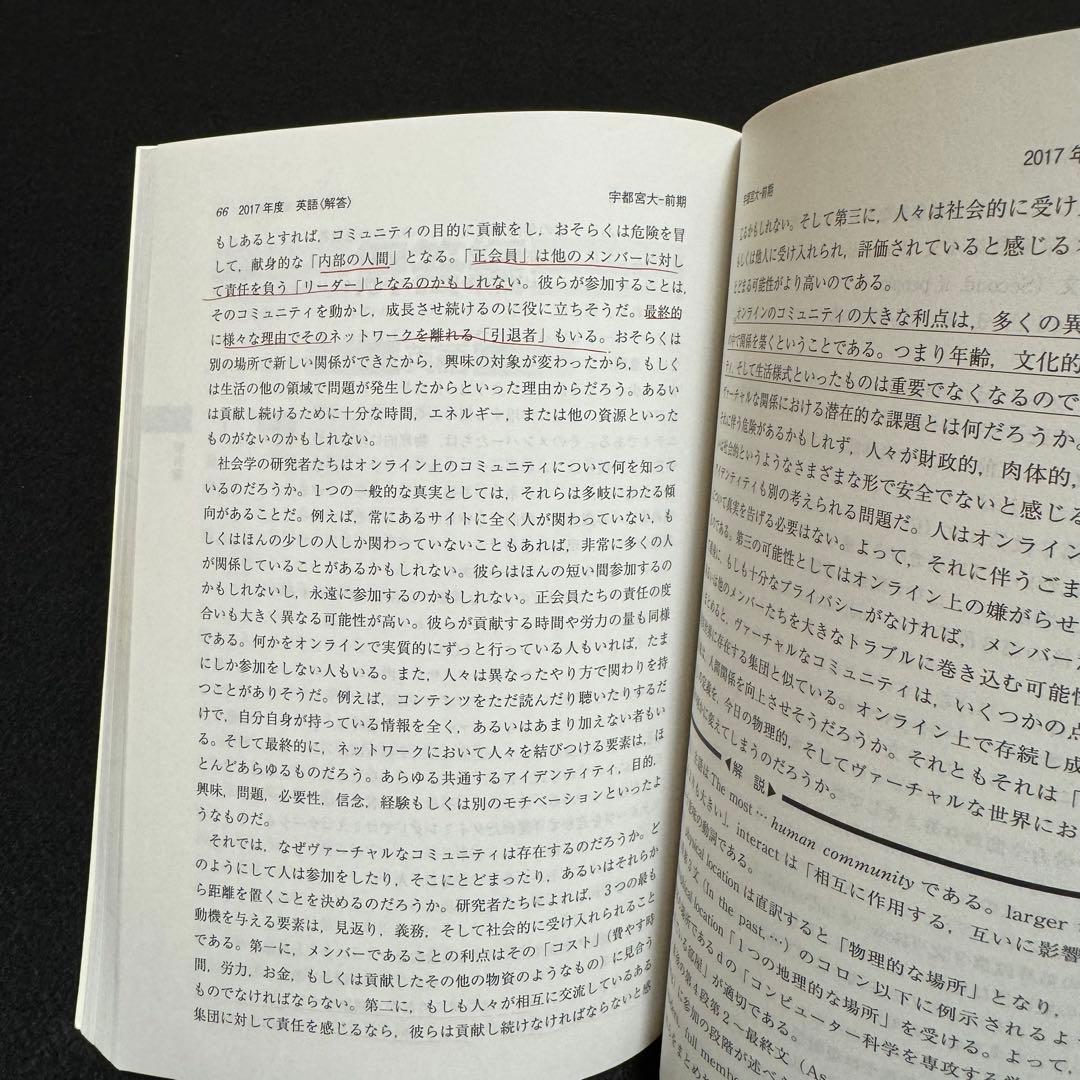 66 2017年度 英語〈解答〉
宇都宮大-前期
もしあるとすれば，コミュニティの目的に貢献をし，おそらくは危険を冒
して，献身的な「内部の人間」となる。「正会員」は他のメンバーに対し
て責任を負う「リーダー」となるのかもしれない。彼らが参加することは，
そのコミュニティを動かし，成長させ続けるのに役に立ちそうだ。最終的
に様々な理由でそのネットワークを離れる「引退者」もいる。おそらくは
別の場所で新しい関係ができたから，興味の対象が変わったから，もしく
は生活の他の領域で問題が発生したからといった理由からだろう。あるい
は貢献し続けるために十分な時間，エネルギー，または他の資源といった
ものがないのかもしれない。
社会学の研究者たちはオンライン上のコミュニティについて何を知って
いるのだろうか。1つの一般的な真実としては，それらは多岐にわたる傾
向があることだ。例えば，常にあるサイトに全く人が関わっていない，も
しくはほんの少しの人しか関わっていないこともあれば，非常に多くの人
が関係していることがあるかもしれない。彼らはほんの短い間参加するの
かもしれないし，永遠に参加するのかもしれない。正会員たちの責任の度
合いも大きく異なる可能性が高い。彼らが貢献する時間や労力の量も同様
である。何かをオンラインで実質的にずっと行っている人もいれば，たま
にしか参加をしない人もいる。また，人々は異なったやり方で関わりを持
つことがありそうだ。例えば，コンテンツをただ読んだり聴いたりするだ
けで，自分自身が持っている情報を全く，あるいはあまり加えない者もい
る。そして最終的に，ネットワークにおいて人々を結びつける要素は，ほ
とんどあらゆるものだろう。あらゆる共通するアイデンティティ，目的，
興味，問題，必要性，信念，経験もしくは別のモチベーションといったよ
うなものだ。
それでは，なぜヴァーチャルなコミュニティは存在するのだろうか。ど
のようにして人は参加をしたり，そこにとどまったり，あるいはそれらか
ら距離を置くことを決めるのだろうか。研究者たちによれば，3つの最も
動機を与える要素は，見返り，義務，そして社会的に受け入れられること
である。第一に，メンバーであることの利点はその「コスト」（費やす時
間，労力，お金，もしくは貢献したその他の物資のようなもの）に見合う
ものでなければならない。第二に，もしも人々が相互に交流しているある
集団に対して責任を感じるなら，彼らは貢献し続けなければならないと感
2017年
宇都宮大-前期
じるかもしれない。そして第三に，人々は社会的に受け
もしくは他人に受け入れられ，評価されていると感じる
とどまる可能性がより高いのである。
オンラインのコミュニティの大きな利点は，多くの異
中で関係を築くということである。つまり年齢，文化的
そして生活様式といったものは重要でなくなるので
ヴァーチャルな関係における潜在的な課題とは何だろうか。
それに伴う危険があるかもしれず，人々が財政的，肉体的，
社会的というようなさまざまな形で安全でないと感じる
アイデンティティも別の考えられる問題だ。人はオンライン
について真実を告げる必要はない。よって，それに伴うごま
である。第三の可能性としてはオンライン上の嫌がらせ
もしも十分なプライバシーがなければ，メンバー
他のメンバーたちを大きなトラブルに巻き込む可能性
まとめると，ヴァーチャルなコミュニティは，いくつかの点
に存在する集団と似ている。オンライン上で存続し成
人間関係を向上させそうだろうか。それともそれは「
を，今日の物理的，そしてヴァーチャルな世界にお
に変えてしまうのだろうか。
◀解 説▶
主語は The most … human community である。larger
も大きい」，interact は「相互に作用する，互いに影響
の動詞である。
physical location は直訳すると「物理的な場所」となり，
(In the past, …) のコロン以下に例示されるよ
location「1つの地理的な場所」を受ける。よって，
である d の「コンピューター科学を専攻する
が適切である。
第4段第2～最終文（As
に参加の段階が述べ
full membe